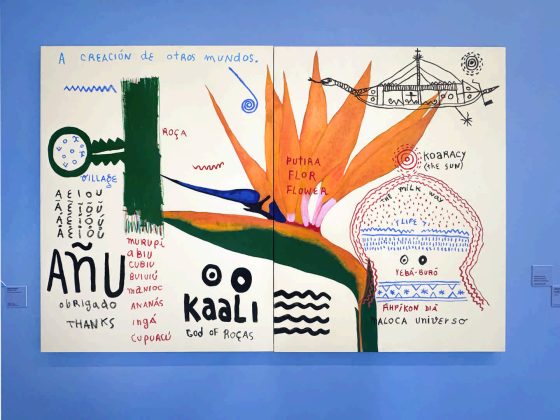 A CREACIÓN DE OTROS MUNDOS.
ROÇA
VILLAGE
A E I O U
obrigado
THANKS
AÑU
murupi
abiu
cubiu
buiuiú
manioc
ananás
ingá
cupuaçu
KAALI
God of Roças
PUTIRA
FLOR
FLOWER
KOARACY
(the sun)
THE MILK WAY
(LIFE)
YEBÁ-BURÓ
AHPIKON DIÁ
MALOCA UNIVERSO